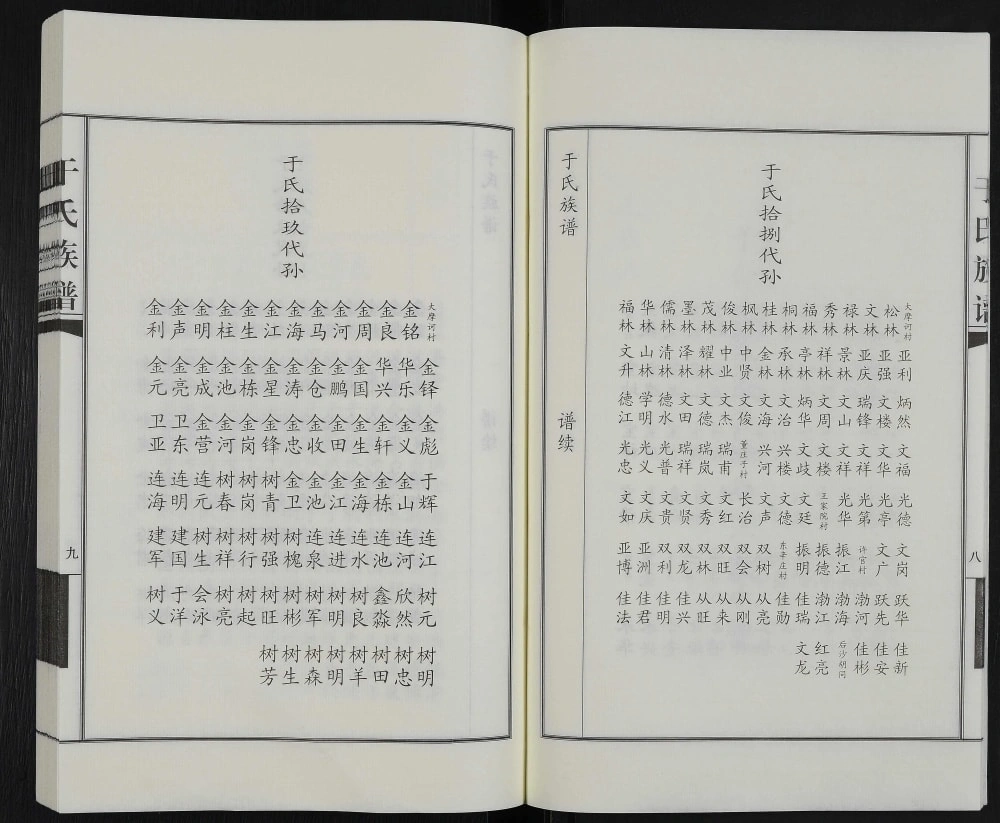 于氏族谱
八
于氏拾捌代孙
大摩诃村 松林 文林 禄林 秀林 福林 桐林 桂林 枫林 俊林 茂林 墨林 儒林 华林 福林
亚利 亚强 亚庆 景林 祥林 亭林 承林 金林 中贤 中业 耀林 泽林 清林 山林 文升
炳然 文楼 瑞锋 文山 文周 炳华 文治 文海 文俊 文杰 文德 文田 德水 学明 德江
文福 文华 文祥 文祥 文楼 文歧 兴楼 兴河 董庄子村 瑞甫 瑞岚 瑞祥 光普 光义 光忠
光德 光亭 光第 光华 王家院村 文廷 文德 文声 长治 文红 文秀 文贤 文贵 文庆 文如
文岗 文广 许官村 振江 振德 振明 东辛庄村 双树 双会 双旺 双林 双龙 双利 亚洲 亚博
跃华 跃先 渤河 渤海 渤江 佳瑞 佳勋 从亮 从刚 从来 从旺 佳兴 佳明 佳君 佳法
佳新 佳安 佳彬 后沙胡同 红亮 文龙
于氏族谱
谱续
于氏拾玖代孙
大摩诃村 金铭 金良 金周 金河 金马 金海 金江 金生 金柱 金明 金声 金利
金铎 华乐 华兴 金国 金鹏 金仓 金涛 金星 金栋 金池 金成 金亮 金元
金彪 金义 金轩 金生 金田 金收 金忠 金锋 金岗 金河 金营 卫东 卫亚
于辉 金山 金栋 金海 金江 金池 金卫 树青 树岗 树春 连元 连明 连海
连江 连河 连池 连水 连进 连泉 树槐 树强 树行 树祥 树生 建国 建军
树元 欣然 鑫淼 树良 树明 树军 树彬 树旺 树起 树亮 会泳 于洋 树义
树明 树忠 树田 树羊 树明 树森 树生 树芳
于氏族谱
九